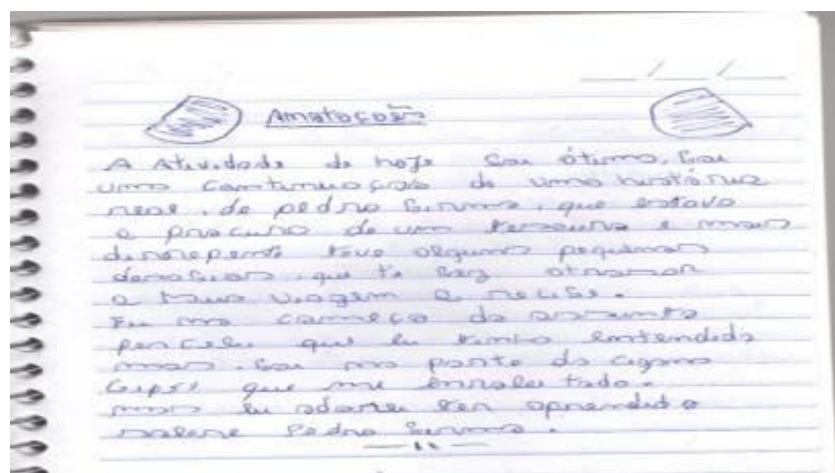 Amotoções
A Atividade de hoje foi ótimo, foi
uma continuação de uma história
real, de pedro Burma, que estava
a procura de um tesouro e mais
derrepente teve alguns pequenos
desafios, que te fez atrasar
a sua viagem a
Eu no começo do assunto
percebi que eu tinha entendido
mais, foi no ponto do cigano
que me enrolei todo.
mais eu adorei ter aprendido
sobre Pedro Burma.